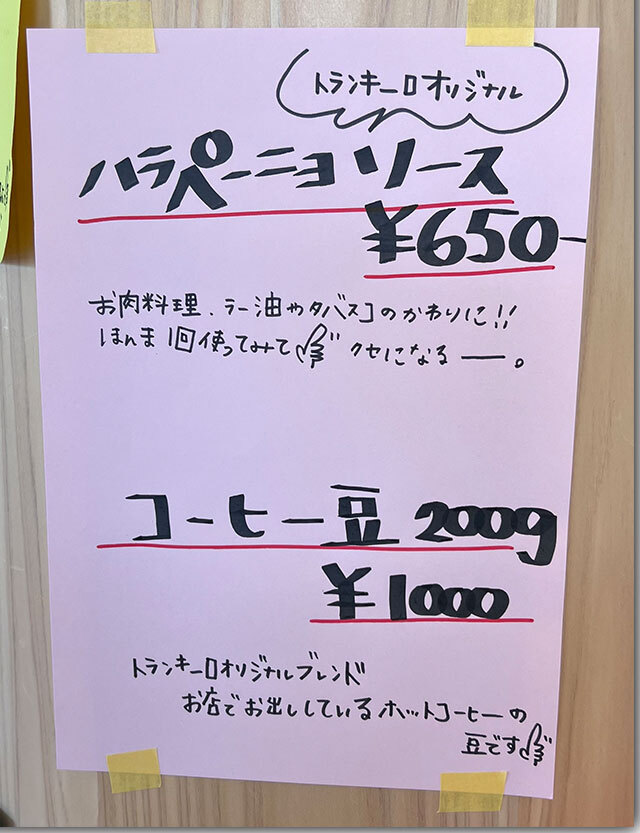 トランキーロオリジナル
ハラペーニョソース
¥650-
お肉料理、ラー油やタバスコのかわりに!!
ほんま1回使ってみて クセになるー。
コーヒー豆 200g
¥1000
トランキーロオリジナルブレンド
お店でお出ししているホットコーヒーの
豆です